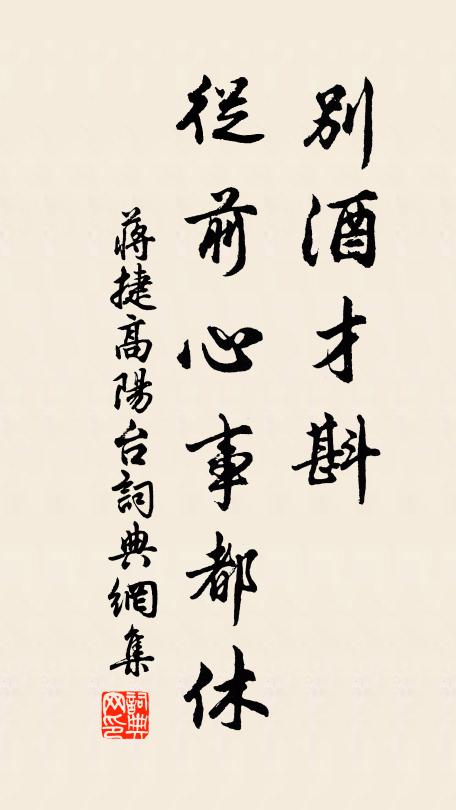 別酒才斟
從前心事都休
蔣捷高陽台詞典網集
詞典网印